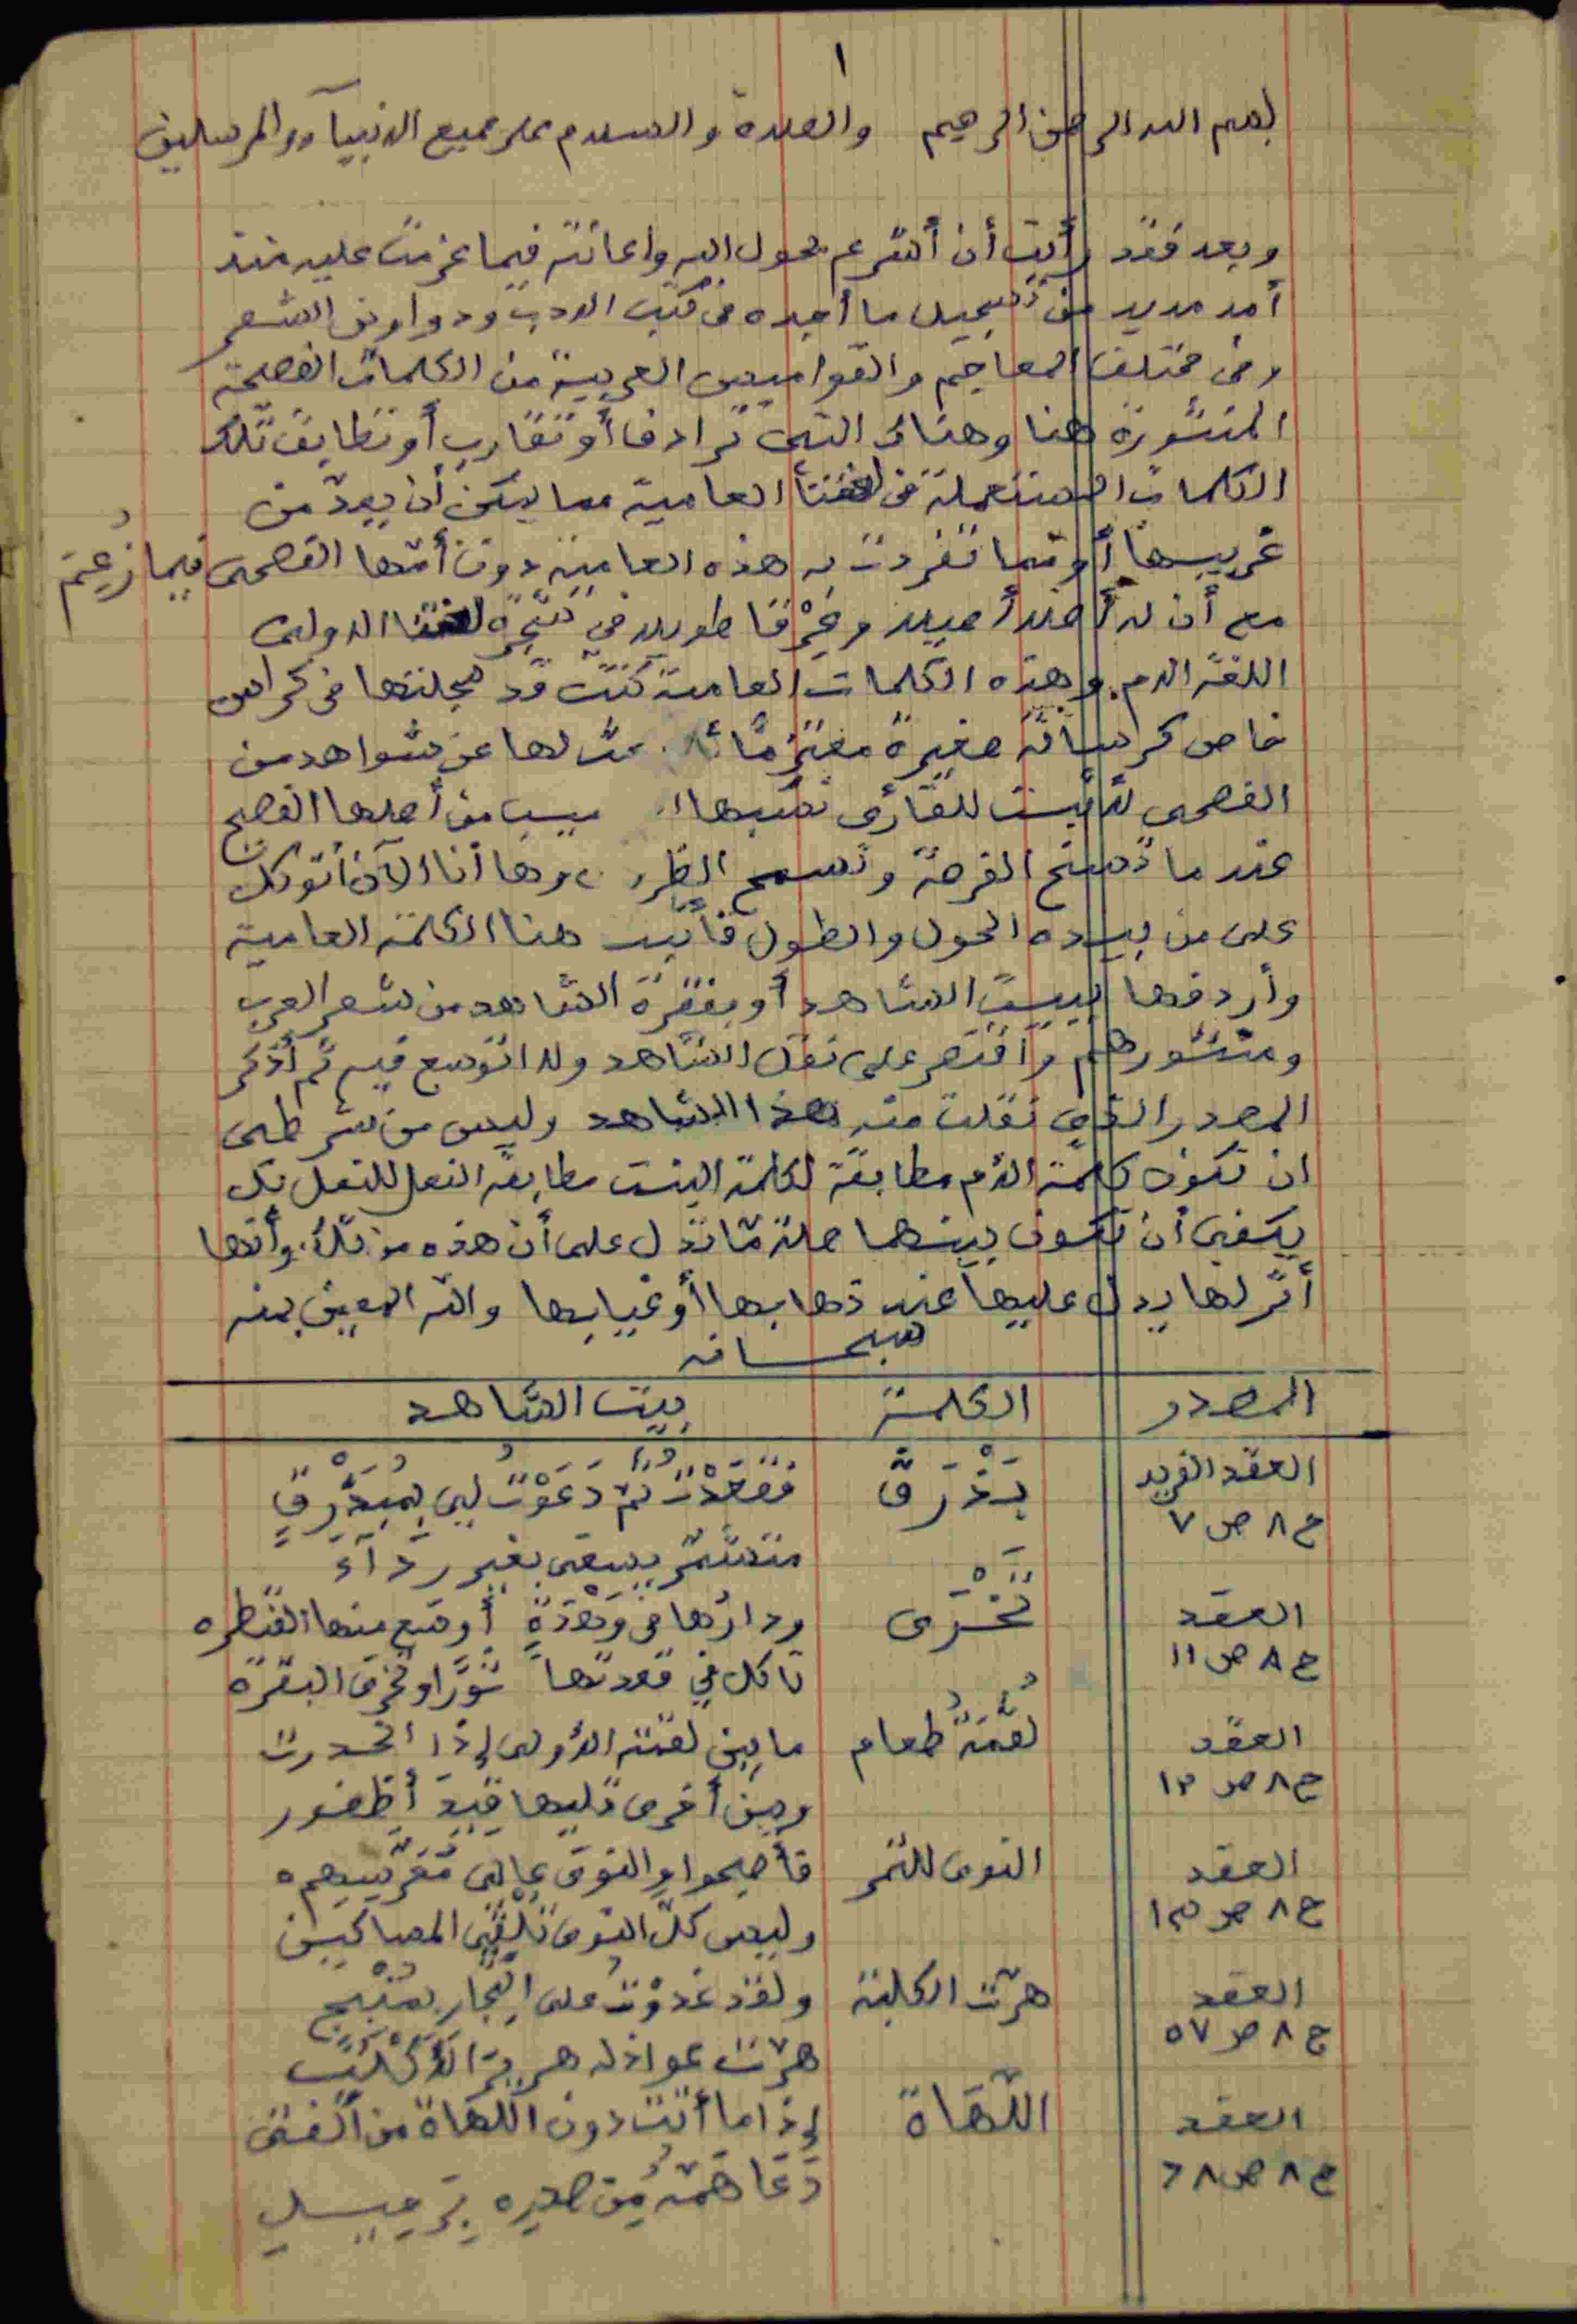 ١
بسم الله الرحمن الرحيم والصلاة والسلام على جميع الانبيآء والمرسلين
وبعد فقد رأيت أن أشرع بحول الله وإعانته فيما عزمت عليه منذ
أمد مديد من تسجيل ما أجده في كتب الادب ودواوين الشعر
وفي مختلف المعاجم والقواميس العربية من الكلمات الفصيحة
المنثورة هنا وهناك التي ترادف أو تقارب أو تطابق تلك
الكلمات المستعملة في لغتنا العامية مما يمكن أن يعدّ من
غريبها أو مما تفردت به هذه العامية دون أمّها الفصحى فيما زُعِمَ
مع أن له أصلاً أصيلا وعِرْقا طويلا في شجرة لغتنا الاولى
اللغة الام. وهذه الكلمات العامية كنت قد سجلتها في كراس
خاص كراسة صغيرة معتزمًا عن شواهد من
الفصحى لأثبت للقارئ نسبها من أصلها الفصيح
عند ما تسنح الفرصة وتسمح الظروف، وها أنا الآن أتوكل
على من بيده الحول والطول فأثبت هنا الكلمة العامية
وأردفها ببيت الشاهد أو بفقرة الشاهد من شعر العرب
ومنثورهم وأقتصر على نقل الشاهد ولا اتوسع فيه ثم أذكر
المصدر الذي نقلت منه هذا الشاهد وليس من شرطي
ان تكون كلمة الأم مطابقة لكلمة البنت مطابقة النعل للنعل بل
يكفي أن تكون بينهما صلة مّا تدل على أن هذه من تلك. وأنها
أثر لها يدل عليها عند ذهابها أو غيابها والله المعين بمنه
سبحانه
المصدر الكلمة بيت الشاهد
العقد الفريد بَذْرَقَ فقعَدْتُ ثمّ دَعَوْتُ لي بمُبَذْرِقٍ
ج ٨ ص ٧
متشمّرٍ يسعى بغير ردآء
العقد تَخْرَى ودارُها في وَهْدَةٍ أوسع منها القنطره
ج ٨ ص ١١ تاكل في قعدتها ثورًا وتخرى البقرة
العقد لقمَةُ طعام ما بين لقمته الأولى إذا انحدرت
ج ٨ ص ١٣
وبين أخرى تليها قيدَ أظفور
العقد النوى للتمر فأصبحوا والنوى عالي مُعَرَّسِهم
ج ٨ ص ١٣
وليس كلّ النوى تُلْقي المساكين
العقد هرّت الكلبة ولقد غدوْتُ على التجار بمُسْمِحٍ
ج ٨ ص ٥٧
هرّت عواذله هريرَ الأكْلُبِ
العقد اللّهَاة إذا ما أتت دون اللّهاة من الفتى
ج ٨ ص ٦٨
دَعَا همّهُ من صدره برَحِيلِ